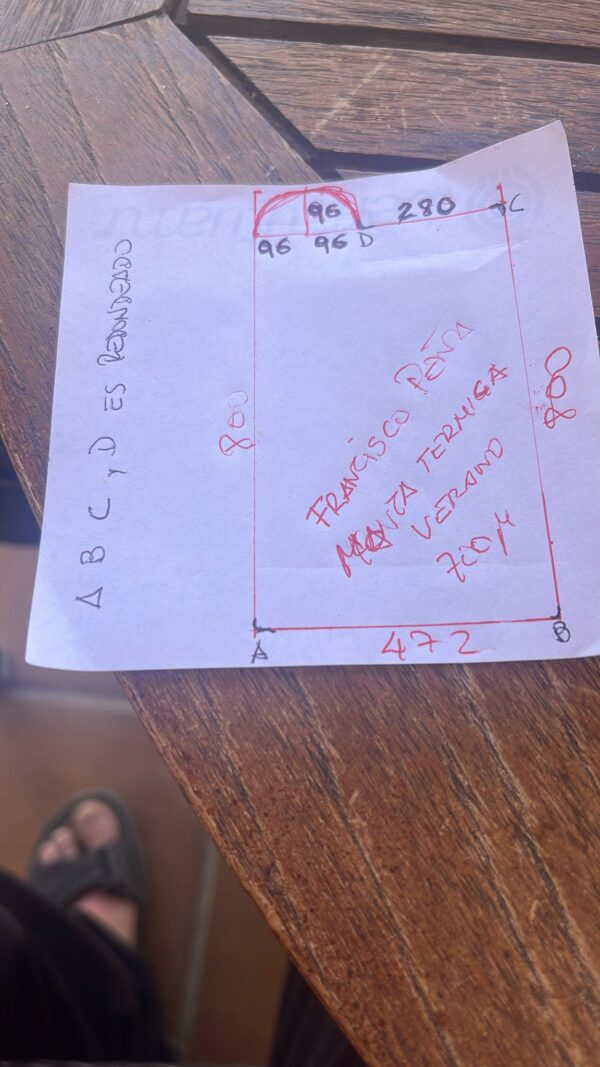 96
280
C
96 96 D
800
800
FRANCISCO PEÑA
MANTA TERMICA
VERANO
700 µ
A
472
B
A B C y D ES REDONDEADO